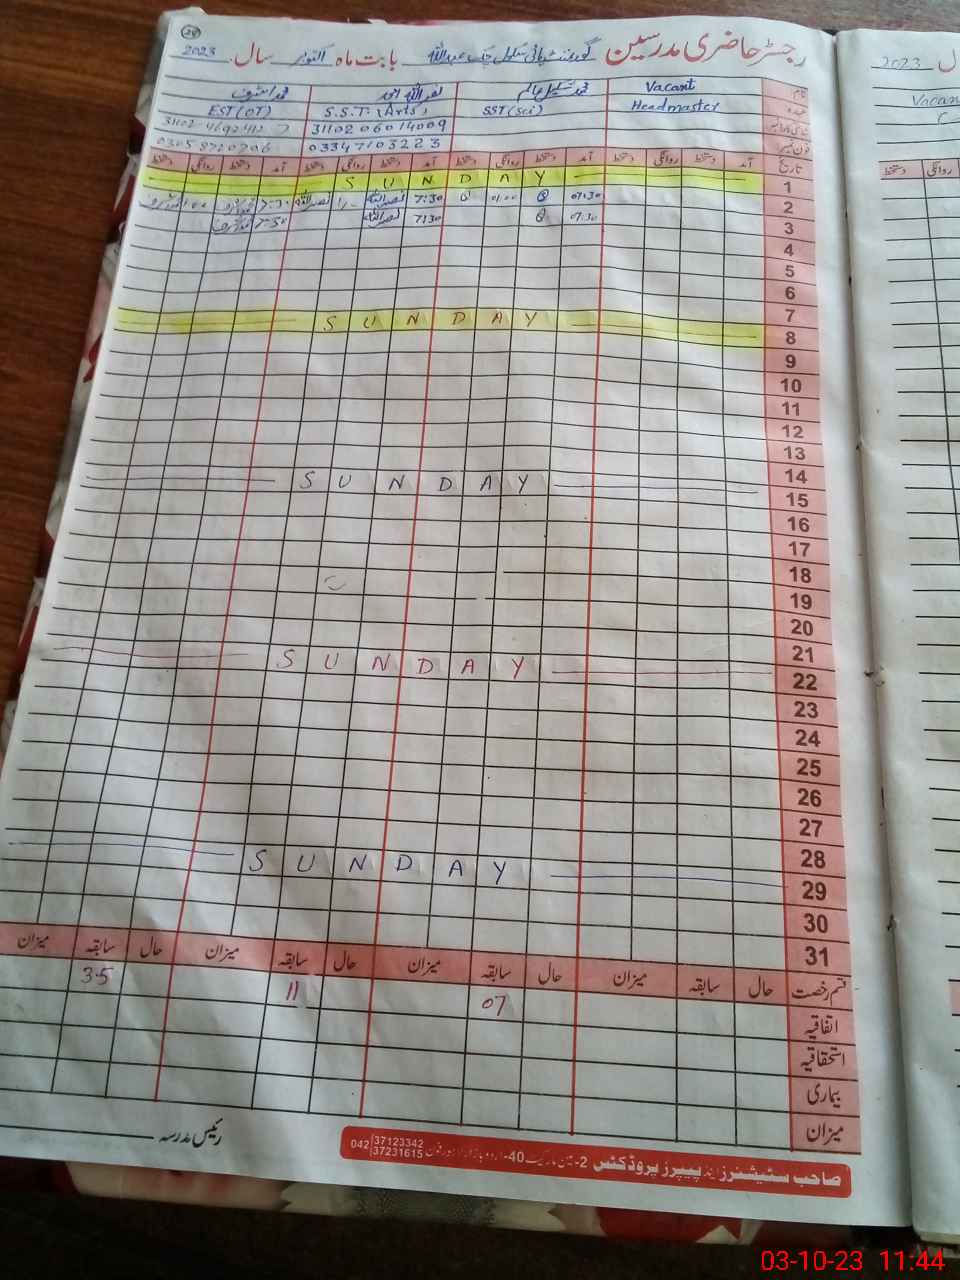 رجسٹر حاضری مدرسین گورنمنٹ ہائی سکول چک عبداللہ بابت ماہ اکتوبر سال 2023
نام Vacant محمد سلیل عالم نصراللہ احمد محمد اشرف
عہدہ Headmaster SST (Sci) S.S.T. (Arts) EST (OT)
31102 06014009
فون نمبر 0334 7103223
تاریخ آمد دستخط روانگی دستخط آمد دستخط روانگی دستخط آمد دستخط روانگی دستخط آمد دستخط روانگی دستخط
1 SUNDAY
2 07:30 01:00 7:30 نصراللہ نصراللہ
3 07:30 7:30 نصراللہ
4
5
6
7
8 SUNDAY
9
10
11
12
13
14
15 SUNDAY
16
17
18
19
20
21
22 SUNDAY
23
24
25
26
27
28
29 SUNDAY
30
31
قسم رخصت حال سابقہ میزان حال سابقہ میزان حال سابقہ میزان حال سابقہ میزان
اتفاقیہ 07 11 3.5
استحقاقیہ
بیماری
میزان
رئیس مدرسہ
صاحب سٹیشنرز اینڈ پیپرز پروڈکٹس 2-مین مارکیٹ 40-اردو بازار لاہور فون 042 37123342 37231615
2023
03-10-23 11:44